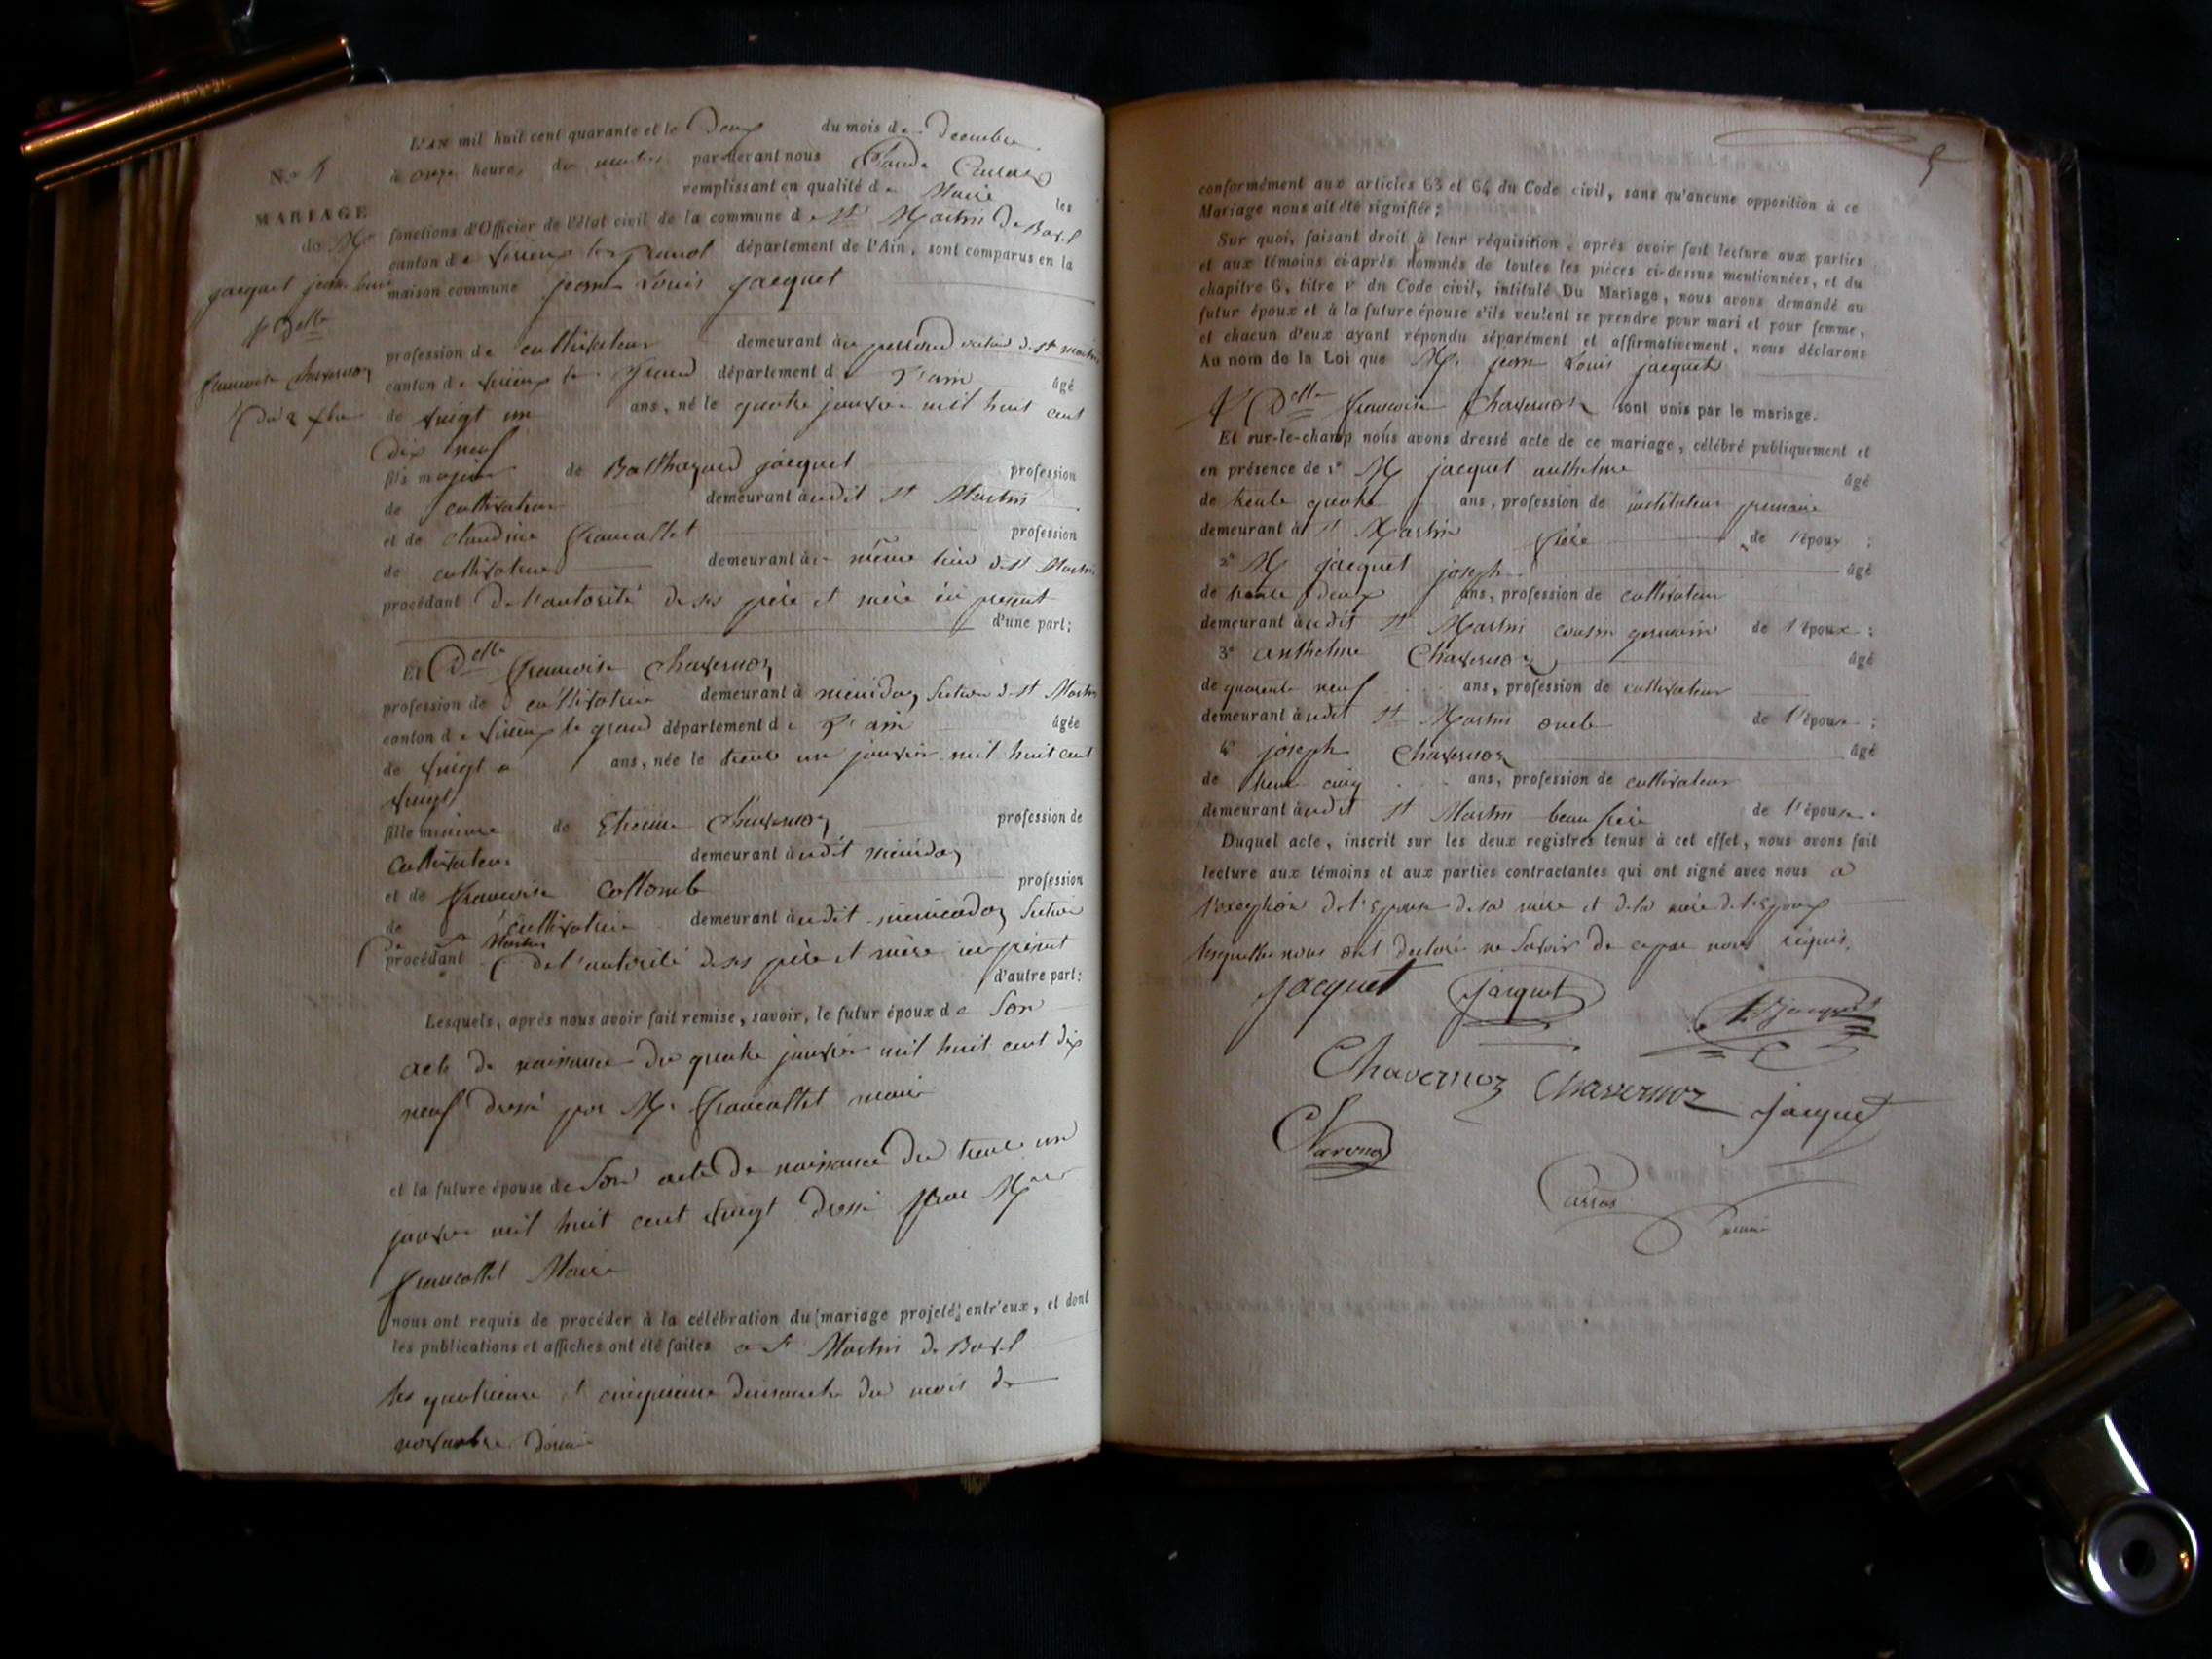 L'AN mil huit cent quarante et le Deux du mois de Decembre
N.° 5
à onze heures du matin par-devant nous Claude
remplissant en qualité de Maire les
MARIAGE
fonctions d'Officier de l'état civil de la commune de St Martin De Bavel
de Mr
canton de virieux le grand département de l'Ain, sont comparus en la
jacquet jean louis
maison commune jean Louis jacquet
& Delle
profession de cultivateur demeurant à section de st martin
francoise Chavernoz
canton de virieux le grand département de l'ain âgé
Du 2 xbre
de vingt un ans, né le quatre janvier mil huit cent
dix neuf
fils majeur de Balthazard jacquet profession
de cultivateur demeurant audit st Martin
et de claudine francallet profession
de cultivatrice demeurant au même lieu de st Martin
procédant De l'autorité de ses père et mère ici présent
d'une part;
Et Delle francoise chavernoz
profession de cultivatrice demeurant à section de st Martin
canton de virieux le grand département de l'ain âgée
de vingt ans, née le trente un janvier mil huit cent
vingt
fille mineure de Etienne Chavernoz profession de
cultivateur demeurant audit
et de francoise Collomb profession
de cultivatrice demeurant audit section
De st Martin
procédant De l'autorité de ses père et mère ici présent
d'autre part;
Lesquels, après nous avoir fait remise, savoir, le futur époux de Son
acte de naissance du quatre janvier mil huit cent dix
neuf dressé par Mr francallet maire
et la future épouse de Son acte De naissance du trente un
janvier mil huit cent vingt dressé par Mr
francallet Maire
nous ont requis de procéder à la célébration du mariage projeté entr'eux, et dont
les publications et affiches ont été faites a St Martin de Bavel
les quatrieme et cinquieme dimanche du mois de
novembre dernier
5
conformément aux articles 63 et 64 du Code civil, sans qu'aucune opposition à ce
Mariage nous ait été signifiée;
Sur quoi, faisant droit à leur réquisition, après avoir fait lecture aux parties
et aux témoins ci-après nommés de toutes les pièces ci-dessus mentionnées, et du
chapitre 6, titre v du Code civil, intitulé Du Mariage, nous avons demandé au
futur époux et à la future épouse s'ils veulent se prendre pour mari et pour femme,
et chacun d'eux ayant répondu séparément et affirmativement, nous déclarons
Au nom de la Loi que Mr jean Louis jacquet
& Delle francoise Chavernoz sont unis par le mariage.
Et sur-le-champ nous avons dressé acte de ce mariage, célébré publiquement et
en présence de 1° M jacquet anthelme âgé
de trente quatre ans, profession de instituteur primaire
demeurant à St Martin frère de l'époux;
2° M jacquet joseph âgé
de trente deux ans, profession de cultivateur
demeurant audit St Martin cousin germain de l'époux;
3° anthelme Chavernoz âgé
de quarante neuf ans, profession de cultivateur
demeurant audit St Martin oncle de l'épouse;
4° joseph Chavernoz âgé
de trente cinq ans, profession de cultivateur
demeurant audit St Martin beau frère de l'épouse.
Duquel acte, inscrit sur les deux registres tenus à cet effet, nous avons fait
lecture aux témoins et aux parties contractantes qui ont signé avec nous a
l'exception de l'Epouse de sa mère et de la mère de l'Epoux
lesquelles nous ont déclaré ne Savoir De ce par nous requis.
Jacquet Jacquet Jacquet
Chavernoz Chavernoz Jacquet
maire